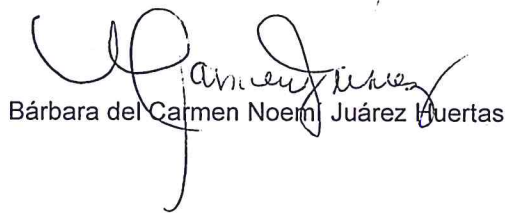 Bárbara del Carmen Noemí Juárez Huertas